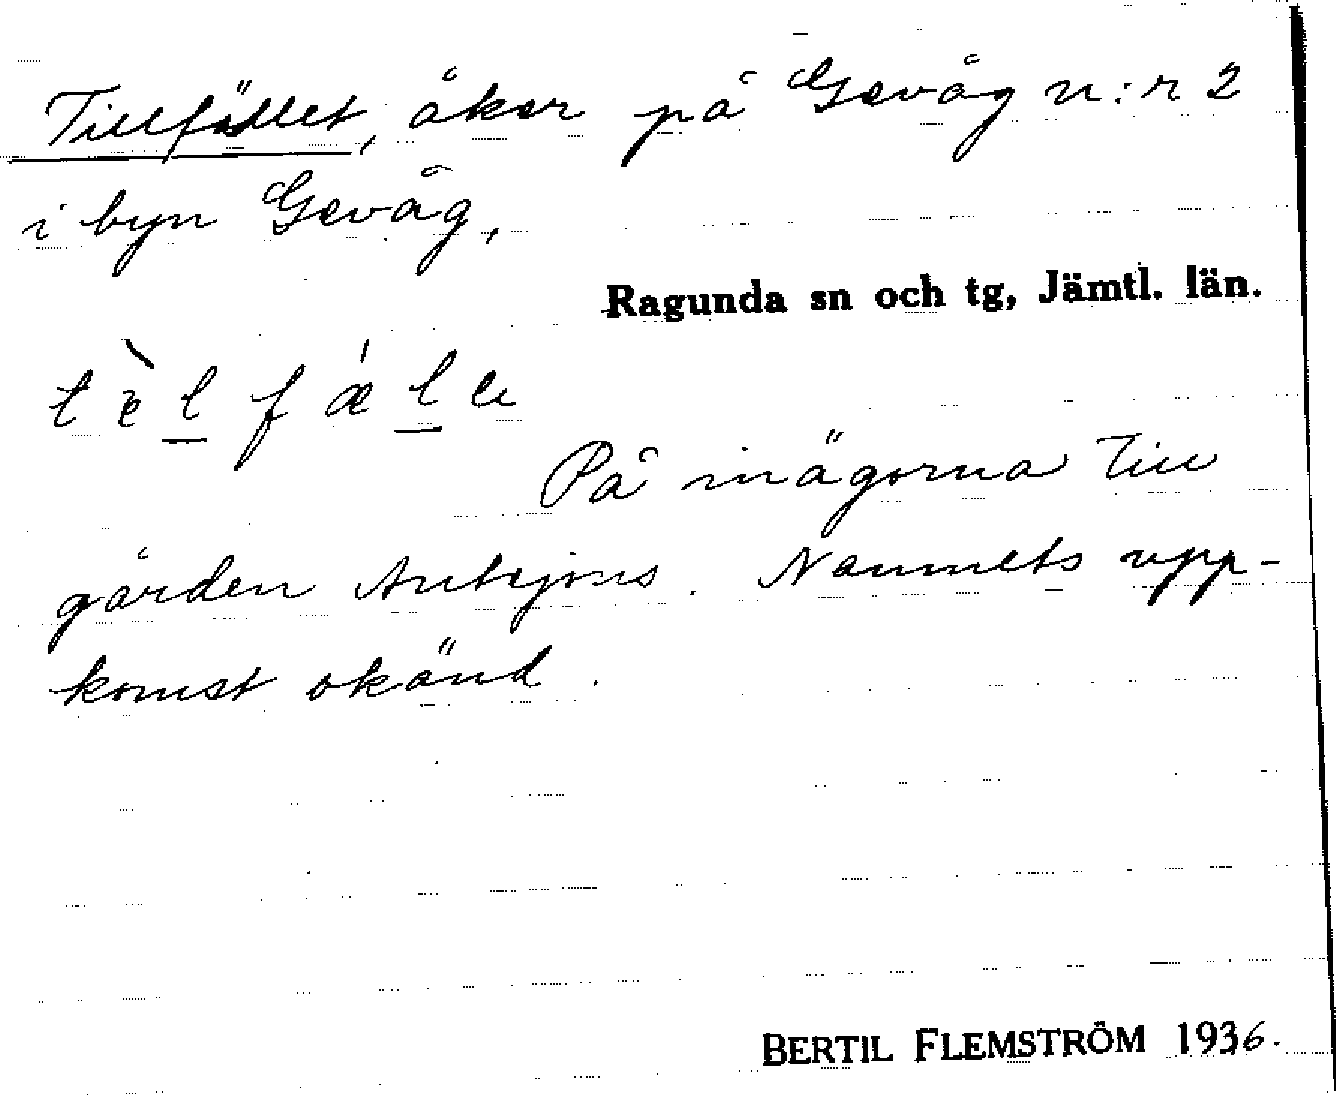 Tillfället, åker på Gevåg n:r 2
i byn Gevåg,
Ragunda sn och tg, Jämtl. län.
På inägorna till
gården Antejons. Namnets upp-
komst okänd.
BERTIL FLEMSTRÖM 1936.